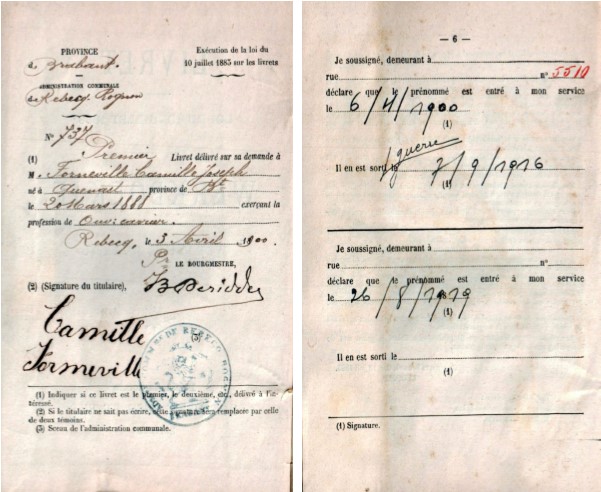 PROVINCE
d Brabant.
ADMINISTRATION COMMUNALE
de Rebecq Rognon
Exécution de la loi du
10 juillet 1883 sur les livrets
N° 737
(1) Premier Livret délivré sur sa demande à
M. Formeville Camille Joseph
né à Quenast province de Bt
le 20 Mars 1888 exerçant la
profession de Ouv. carrier.
Rebecq, le 3 Avril 1900.
LE BOURGMESTRE,
(2) (Signature du titulaire),
Camille
Formeville
(3)
(1) Indiquer si ce livret est le premier, le deuxième, etc., délivré à l'in-
téressé.
(2) Si le titulaire ne sait pas écrire, cette signature sera remplacée par celle
de deux témoins.
(3) Sceau de l'administration communale.
— 6 —
Je soussigné, demeurant à
rue n° 5510
déclare que le prénommé est entré à mon service
le 6/4/1900
(1)
guerre
Il en est sorti le 7/9/1916
(1)
Je soussigné, demeurant à
rue n°
déclare que le prénommé est entré à mon service
le 26/8/1919
(1)
Il en est sorti le
(1)
(1) Signature.